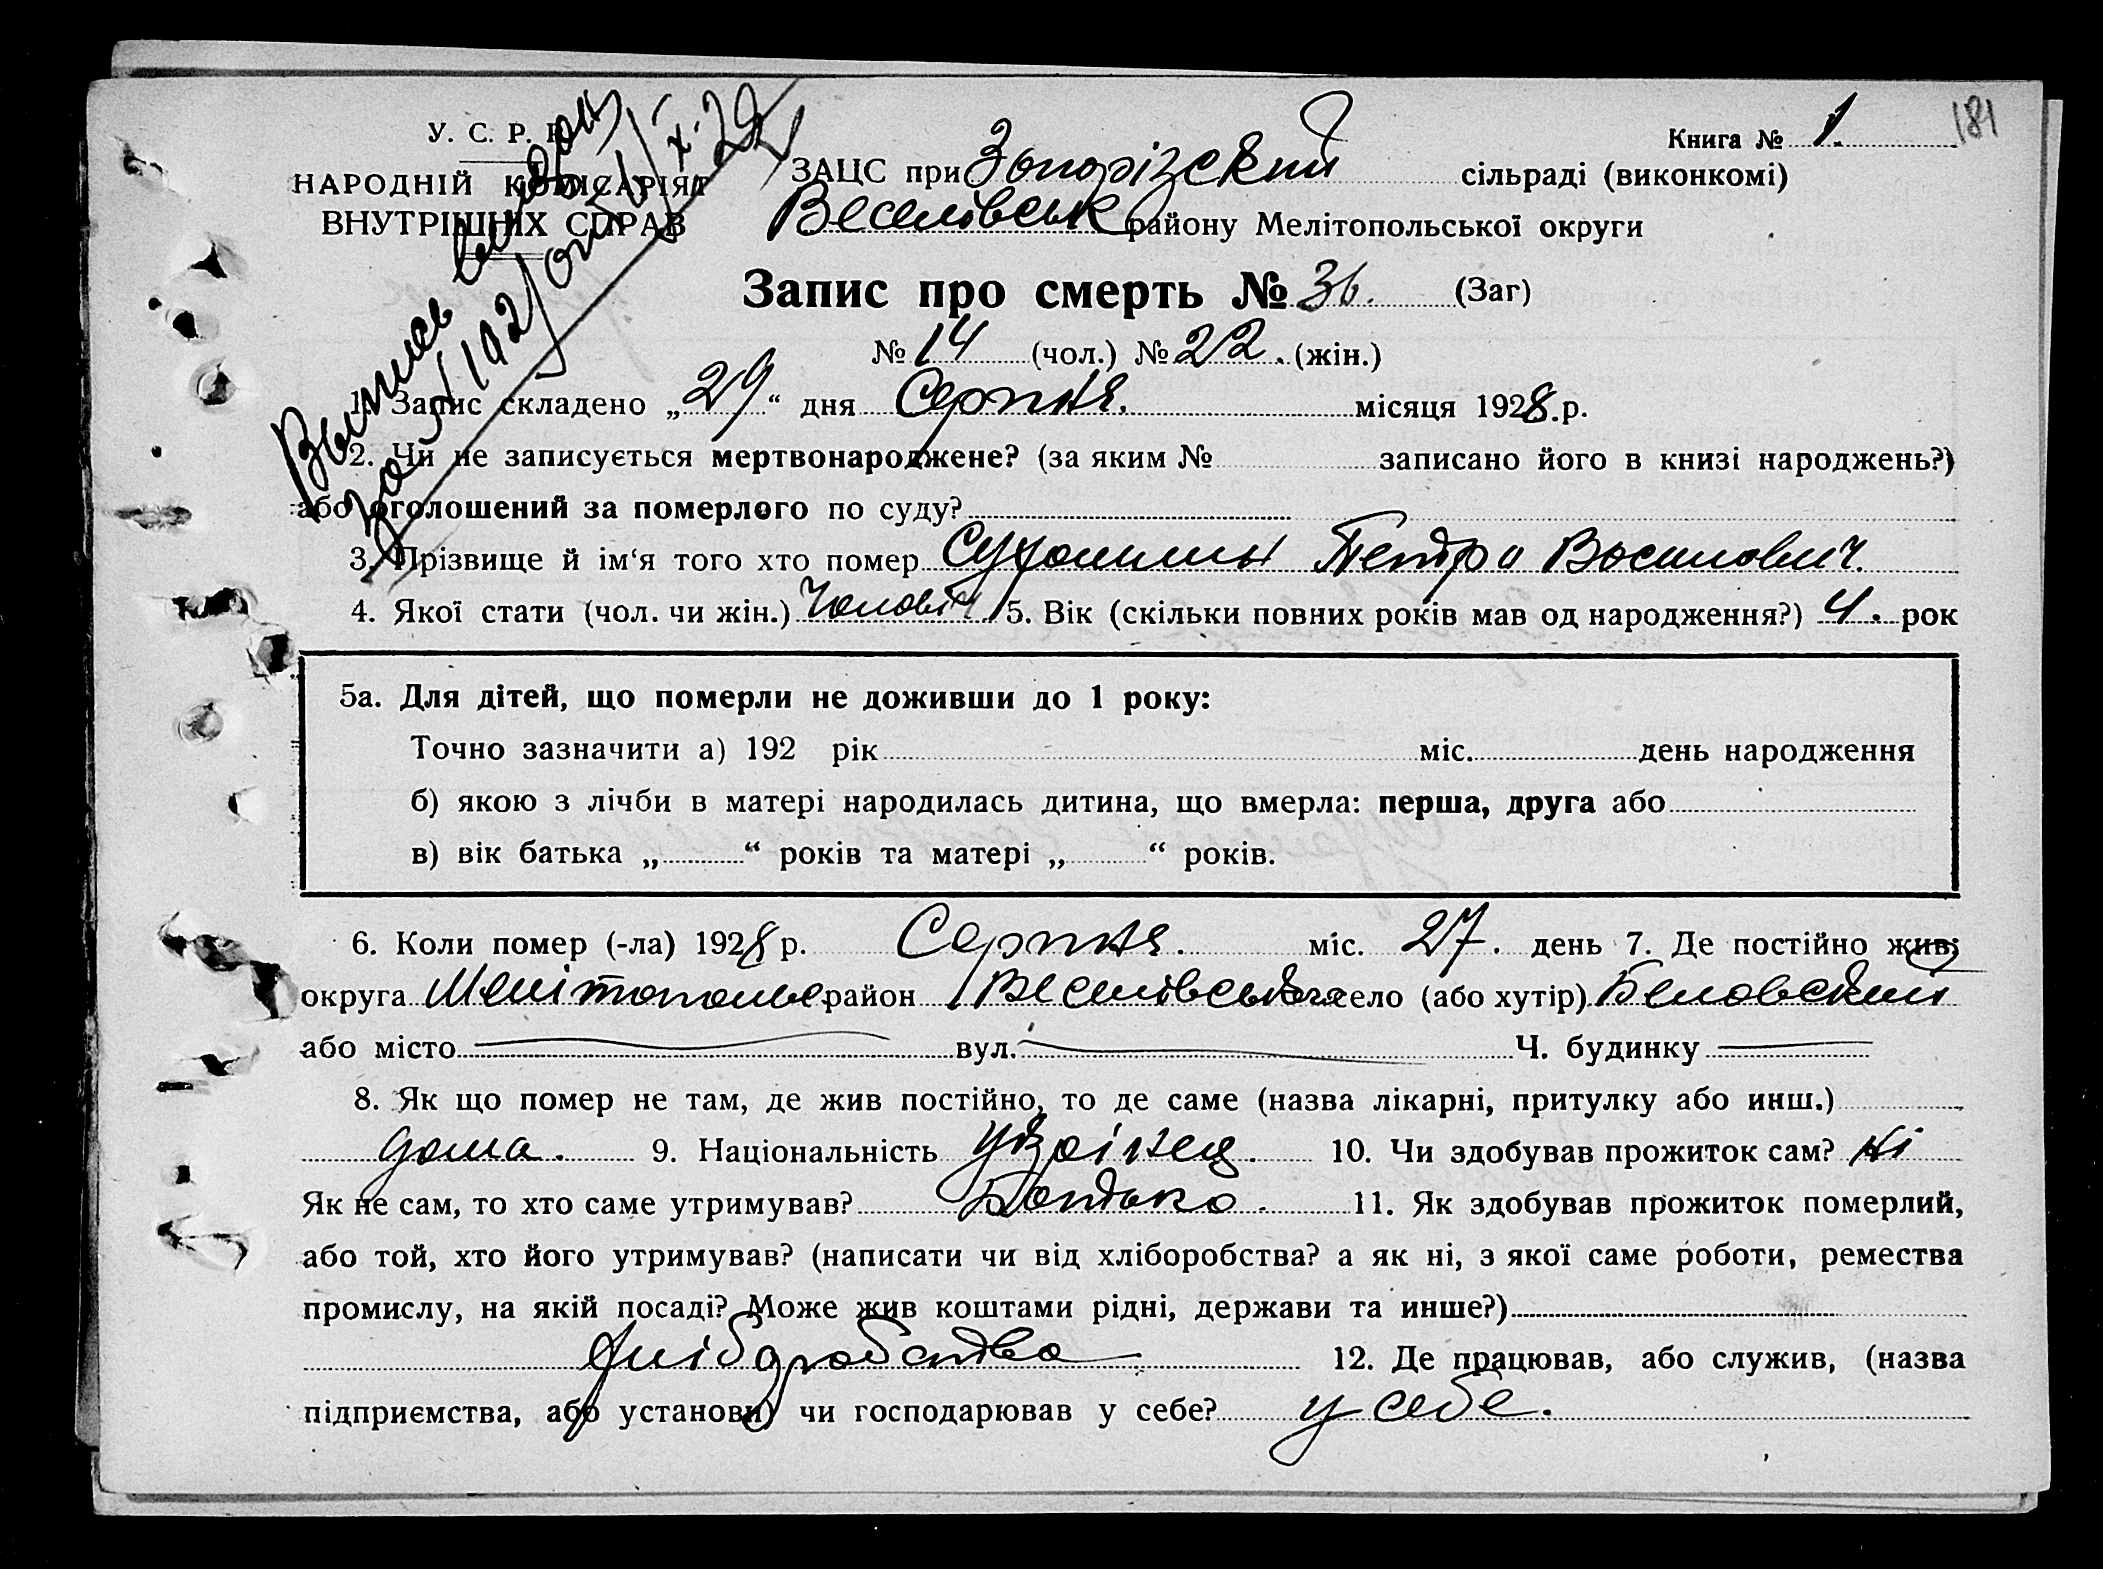 181
Книга № 1.
У. С. Р. Р.
НАРОДНІЙ КОМІСАРІЯТ
ВНУТРІШНІХ СПРАВ
ЗАЦС при Запорізский сільраді (виконкомі)
Веселівськ району Мелітопольської округи
Запис про смерть № 36. (Заг)
№ 14 (чол.) № 22. (жін.)
1. Запис складено „29“ дня Серпня. місяця 1928.р.
2. Чи не записується мертвонароджене? (за яким № записано його в книзі народжень?)
або оголошений за померлого по суду?
3. Прізвище й ім‘я того хто помер Петро Василович.
4. Якої стати (чол. чи жін.) Чоловіч 5. Вік (скільки повних років мав од народження?) 4. рок
5а. Для дітей, що померли не доживши до 1 року:
Точно зазначити а) 192 рік міс. день народження
б) якою з лічби в матері народилась дитина, що вмерла: перша, друга або
в) вік батька „ “ років та матері „ “ років.
6. Коли помер (-ла) 1928 р. Серпня. міс. 27. день 7. Де постійно жив;
округа Мелітопольс район Веселівського село (або хутір) Беловский
або місто вул. Ч. будинку
8. Як що помер не там, де жив постійно, то де саме (назва лікарні, притулку або инш.)
дома. 9. Національність украінец. 10. Чи здобував прожиток сам? ні
Як не сам, то хто саме утримував? Батько. 11. Як здобував прожиток померлий,
або той, хто його утримував? (написати чи від хліборобства? а як ні, з якої саме роботи, ремества
промислу, на якій посаді? Може жив коштами рідні, держави та инше?)
хліборобство 12. Де працював, або служив, (назва
підприємства, або установи) чи господарював у себе? у себе.
Выпись выдана
за № 192/ от 5/IX-29